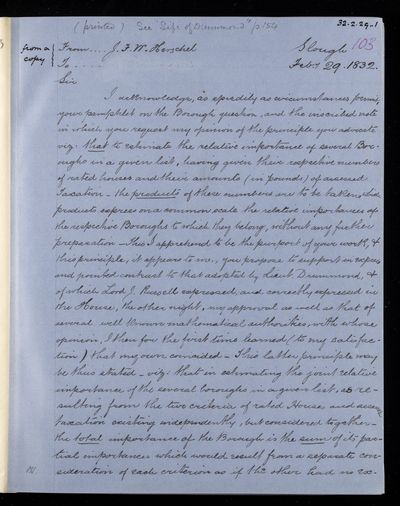 (printed) See "Life of Drummond" p 154
32.2.29.1
103
from a copy
From .... J. F. W. Herschel Slough
To .... Feby 29. 1832.
Sir
I acknowledge, as speedily as circumstances permit,
your pamphlet on the Borough question, and the inscribed note
in which you request my opinion of the principle you advocate
viz. that to estimate the relative importance of several Bor-
oughs in a given list, having given their respective numbers
of rated houses and their amounts (in pounds) of assessed
Taxation – the products of these numbers are to be taken, which
products express on a common scale the relative importances of
the respective Boroughs to which they belong, without any further
preparation – This I apprehend to be the purport of your work, &
this principle, it appears to me, you propose to support in express
and pointed contrast to that adopted by Lieut Drummond, &
of which Lord J. Russell expressed, and correctly expressed in
the House, the other night, my approval as well as that of
several well known mathematical authorities, with whose
opinion, I then for the first time learned (to my satisfac-
tion) that my own coincided – This latter principle may
be thus stated – viz: that in estimating the joint relative
importance of the several boroughs in a given list, as re-
sulting from the two criteria of rated House and assessed
taxation existing independently, but considered together –
the total importance of the Borough is the sum of its par-
tial importances which would result from a separate con-
sideration of each criterion as if the other had no ex-